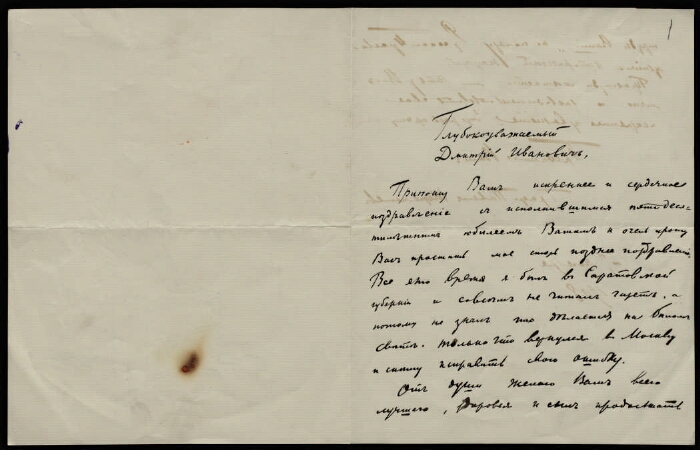 1
Глубокоуважаемый
Дмитрій Ивановичъ,
Приношу Вамъ искреннее и сердечное
поздравленіе съ исполнившимся пятидеся-
тилѣтнимъ юбилеемъ Вашимъ и очень прошу
Васъ простить мое столь позднее поздравленіе.
Все это время я былъ въ Саратовской
губерніи и совсѣмъ не читалъ газетъ, а
потому не зналъ что дѣлается на бѣломъ
свѣтѣ. Только что вернулся въ Москву
и спѣшу исправить свою ошибку.
Отъ души желаю Вамъ всего
лучшаго, здоровья и силъ продолжать